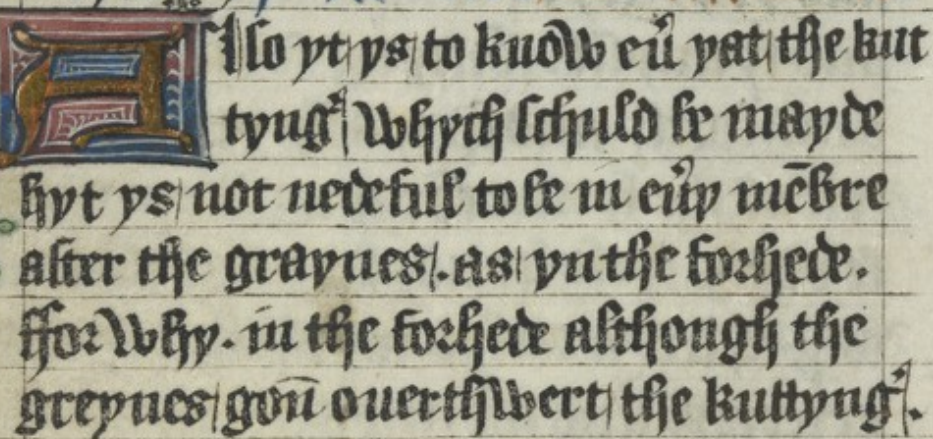 Also yt ys to knōw eu̓ yat the kut
tyng̛ Whych schuld be mayde
hyt ys not nedeful to be in eu̓y mēbre
after the graynes. as yn the forhede.
ffor Why. in the forhede although the
greynes gon̄ ouerthWert the kuttyng̛.